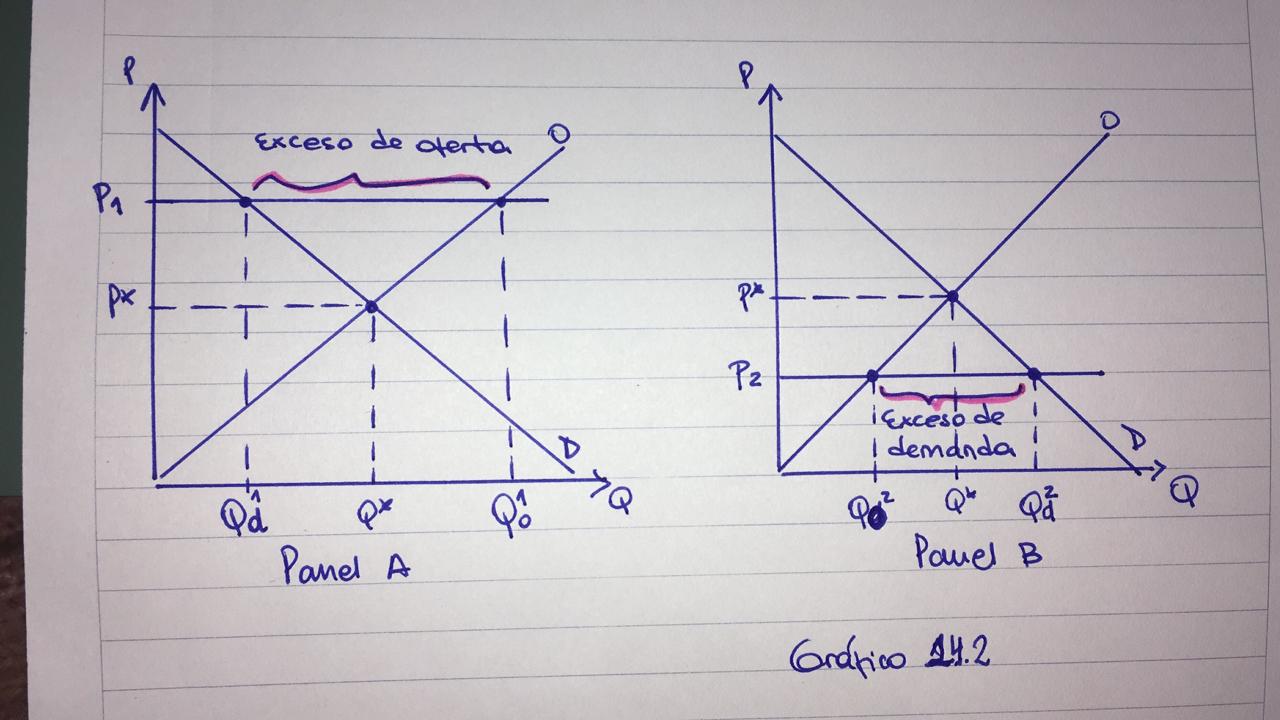 P
Exceso de oferta
O
P₁
P*
D
Q
Qd¹
Q*
Qo¹
Panel A
P
O
P*
P₂
Exceso de
demanda
D
Q
Qo²
Q*
Qd²
Panel B
Gráfico 14.2